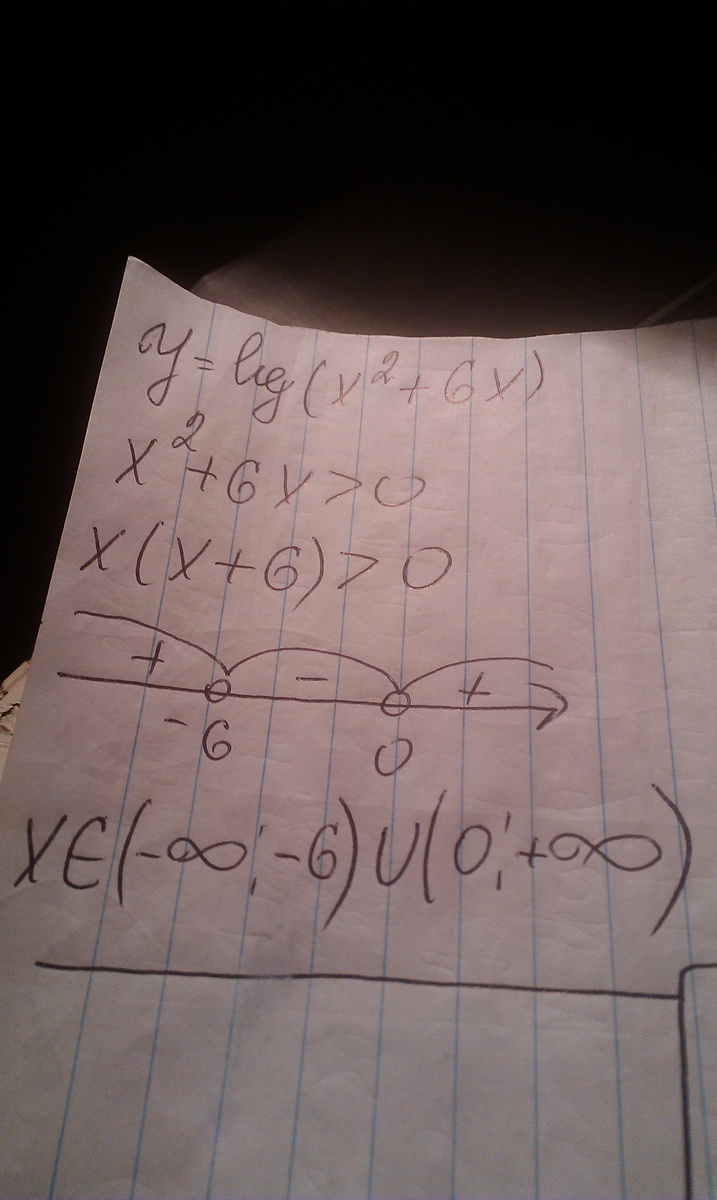 y = log(x²+6x)
x²+6x>0
x(x+6)>0
+ - +
-6 0
x∈(-∞;-6)∪(0;+∞)